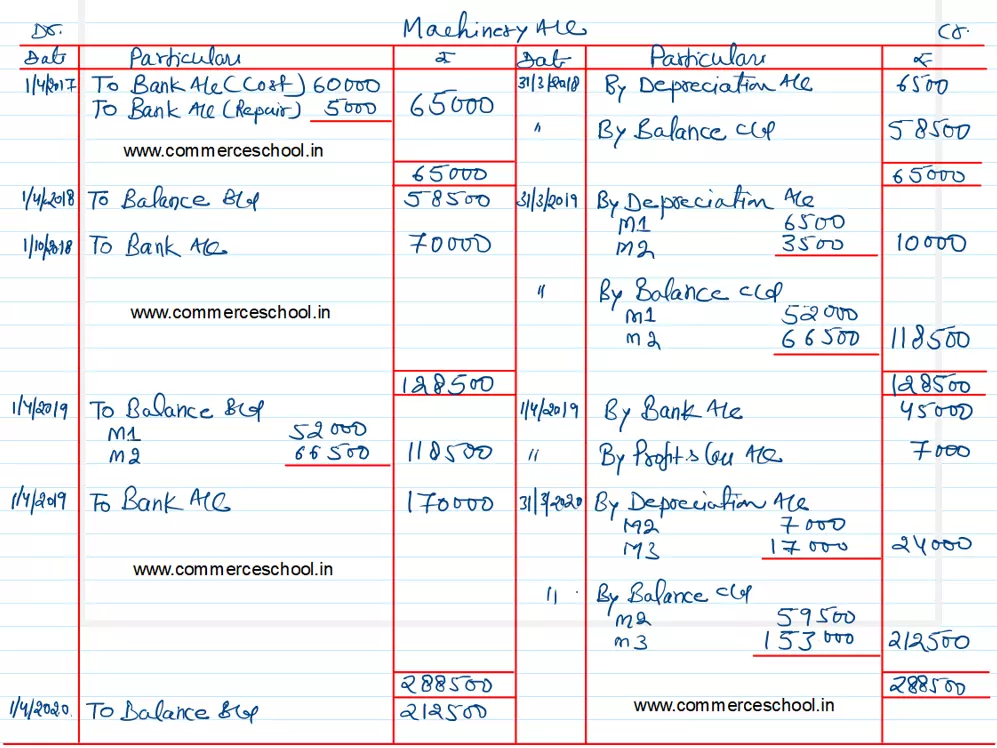 Dr. Machinery A/c Cr.
Date Particulars ₹ Date Particulars ₹
1/4/2017 To Bank A/c (Cost) 60000 31/3/2018 By Depreciation A/c 6500
To Bank A/c (Repair) 5000 65000
" By Balance c/d 58500
www.commerceschool.in
65000 65000
1/4/2018 To Balance B/d 58500 31/3/2019 By Depreciation A/c
M1 6500
1/10/2018 To Bank A/c 70000 M2 3500 10000
" By Balance c/d
www.commerceschool.in M1 52000
M2 66500 118500
128500 128500
1/4/2019 To Balance B/d 1/4/2019 By Bank A/c 45000
M1 52000
M2 66500 118500 " By Profit & Loss A/c 7000
1/4/2019 To Bank A/c 170000 31/3/2020 By Depreciation A/c
M2 7000
M3 17000 24000
www.commerceschool.in
" By Balance c/d
M2 59500
M3 153000 212500
288500 288500
1/4/2020. To Balance B/d 212500 www.commerceschool.in